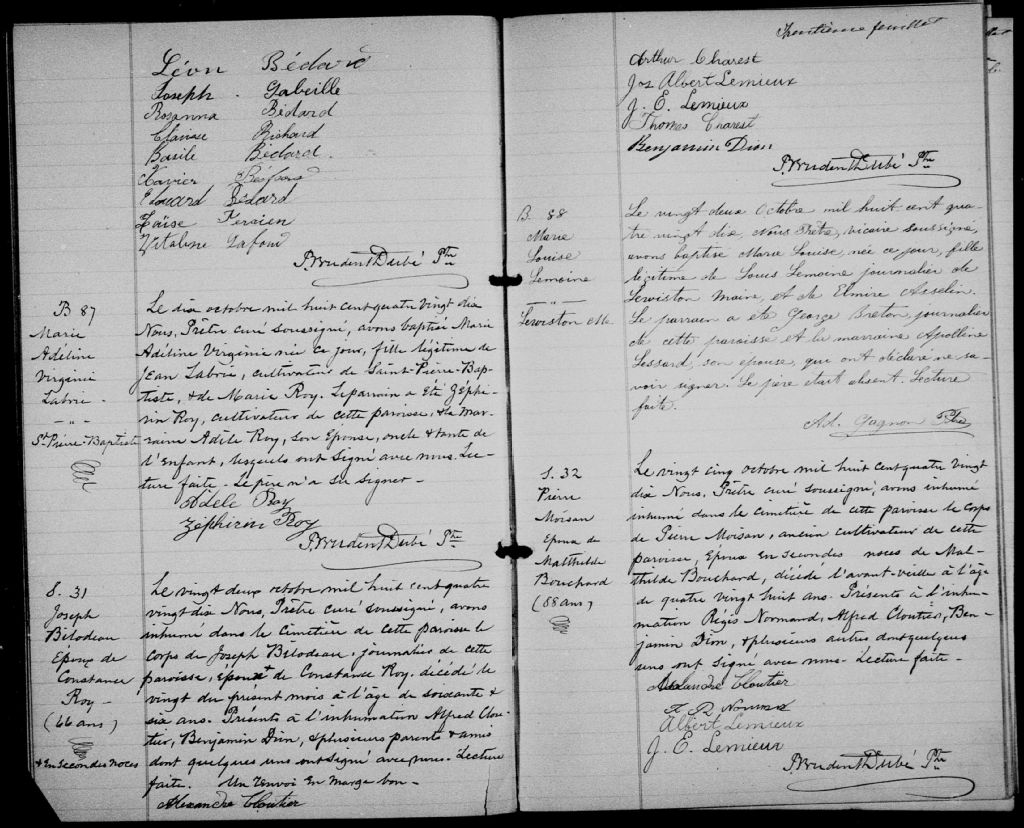 Léon Bédard
Joseph Gabeille
Rosanna Bédard
Clarisse Richard
Basile Bédard.
Xavier
Edouard Bédard
Zaïse
Vitaline Lafond
P. Prudent Dubé Ptre
B 87
Marie
Adéline
Virginie
Labrie -
- " -
St Pierre-Baptiste
Le dix octobre mil huit cent quatre vingt dix
Nous, Prêtre curé soussigné, avons baptisé Marie
Adéline Virginie née ce jour, fille légitime de
Jean Labrie, cultivateur de Saint-Pierre-Bap-
tiste, & de Marie Roy. Le parrain a été Zéphi-
rin Roy, cultivateur de cette paroisse, & la mar-
raine Adèle Roy, son Epouse, oncle & tante de
l'Enfant, lesquels ont signé avec nous. Lec-
ture faite - Le père n'a su signer -
Adèle Roy
Zéphirin Roy
P. Prudent Dubé Ptre
S. 31
Joseph
Bilodeau
Epoux de
Constance
Roy -
(66 ans)
+ En secondes noces
Le vingt deux octobre mil huit cent quatre
vingt dix Nous, Prêtre curé soussigné, avons
inhumé dans le cimetière de cette paroisse le
corps de Joseph Bilodeau, journalier de cette
paroisse, époux + de Constance Roy, décédé le
vingt du présent mois à l'âge de soixante &
six ans. Présents à l'inhumation Alfred Clou-
tier, Benjamin Dion, & plusieurs parents & amis
dont quelques uns ont signé avec nous - Lecture
faite. Un renvoi En marge bon -
Alexandre Cloutier
Trentième feuillet
Arthur Charest
Jos Albert Lemieux
J. E. Lemieux
Thomas Charest
Benjamin Dion
P. Prudent Dubé Ptre
B. 88
Marie
Louise
Lemoine
- " -
Lewiston Me.
Le vingt deux Octobre mil huit cent qua-
tre vingt dix, Nous Prêtre, vicaire soussigné,
avons baptisé Marie Louise, née ce jour, fille
légitime de Louis Lemoine journalier de
Lewiston Maine, et de Elmire Asselin.
Le parrain a été George Breton, journalier
de cette paroisse et la marraine Apolline
Lessard, son épouse, qui ont déclaré ne sa-
voir signer. Le père était absent. Lecture
faite.
Ad. Gagnon Ptre
S. 32
Pierre
Moisan
Epoux de
Mathilde
Bouchard
(88 ans)
Le vingt cinq octobre mil huit cent quatre vingt
dix Nous, Prêtre curé soussigné, avons inhumé
inhumé dans le cimetière de cette paroisse le corps
de Pierre Moisan, ancien cultivateur de cette
paroisse, Epoux En secondes noces de Mal-
thilde Bouchard, décédé l'avant-veille à l'âge
de quatre vingt huit ans. Présents à l'inhu-
mation Régis Normand, Alfred Cloutier, Ben-
jamin Dion, & plusieurs autres dont quelques
uns ont signé avec nous - Lecture faite -
Alexandre Cloutier
F. R. Normand
Albert Lemieux
J. E. Lemieux
P. Prudent Dubé Ptre